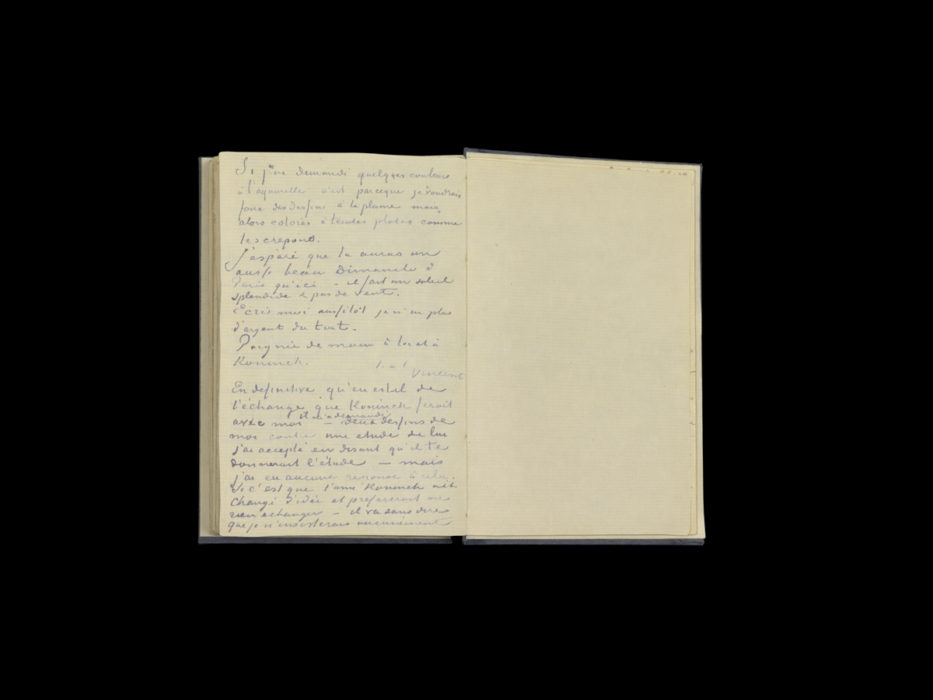 Si j'en demande quelques couleurs
à l'aquarelle c'est parceque je voudrais
faire des dessins à la plume mais
alors coloriés à teintes plates comme
les crepons.
J'espère que tu auras un
aussi beau Dimanche à
Paris qu'ici – il fait un soleil
splendide & pas de vent.
Ecris moi aussitôt je n'ai plus
d'argent du tout.
Poignée de main à toi et à
Koninck.
t. à t.
Vincent
En definitive qu'en est il de
l'échange que Koninck ferait
avec moi
il m'a demandé
– deux dessins de
moi contre une etude de lui
j'ai accepté en disant qu'il te
donnerait l'étude – mais
j'ai eu aucune reponse à cela.
Si c'est que l'ami Koninck ait
changé d'idée et prefererait ne
rien echanger – il va sans dire
que je n'insisterais aucunement